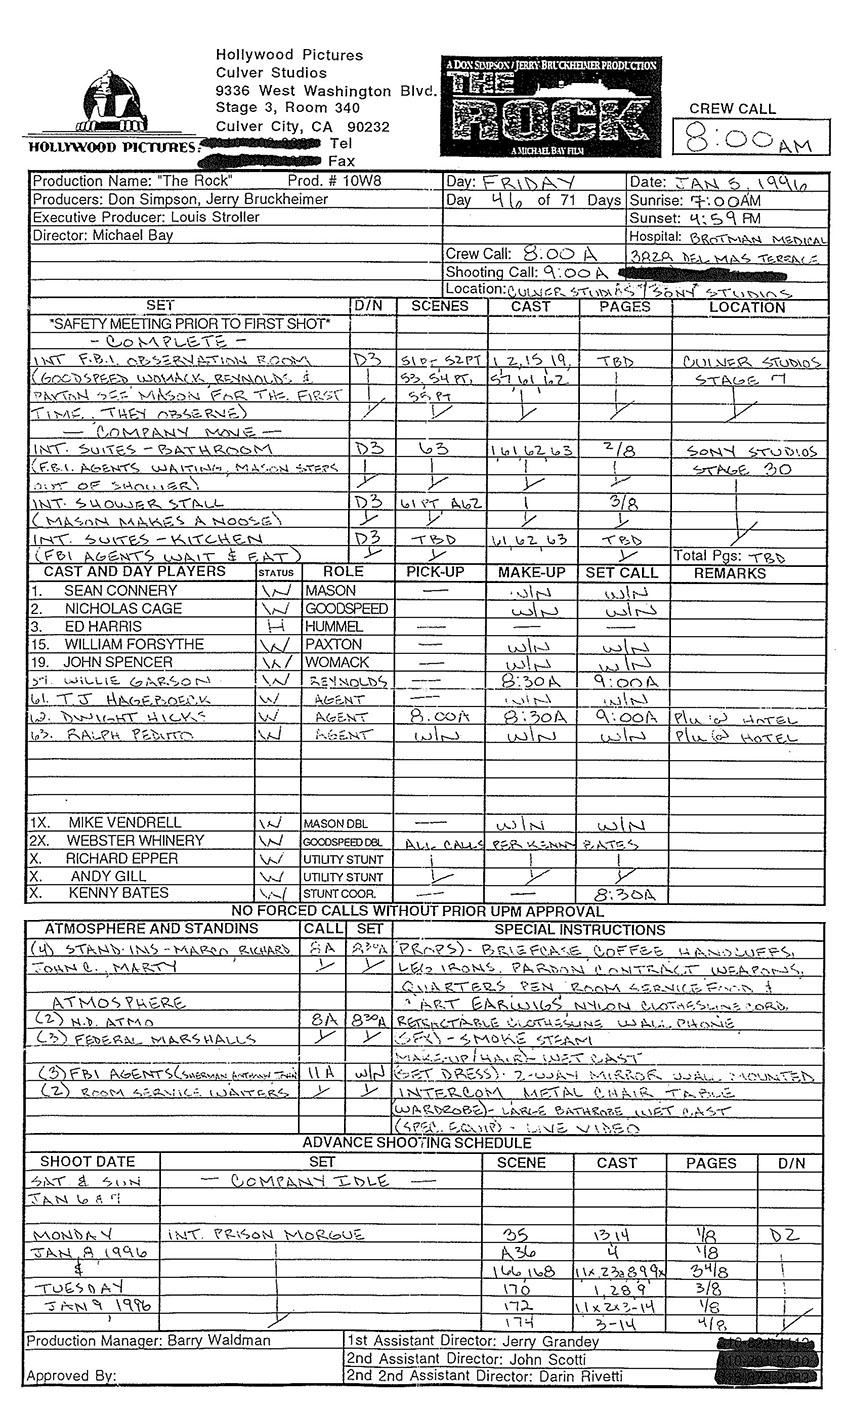 Hollywood Pictures
Culver Studios
9336 West Washington Blvd.
Stage 3, Room 340
Culver City, CA 90232
Tel
Fax
HOLLYWOOD PICTURES
A DON SIMPSON/JERRY BRUCKHEIMER PRODUCTION
THE ROCK
A MICHAEL BAY FILM
CREW CALL
8:00 AM
Production Name: "The Rock" Prod. # 10W8 Day: FRIDAY Date: JAN 5, 1996
Producers: Don Simpson, Jerry Bruckheimer Day 46 of 71 Days Sunrise: 7:00AM
Executive Producer: Louis Stroller Sunset: 4:59 PM
Director: Michael Bay Hospital: BROTMAN MEDICAL
Crew Call: 8:00 A 3828 DEL MAS TERRACE
Shooting Call: 9:00 A
Location: CULVER STUDIOS / SONY STUDIOS
SET D/N SCENES CAST PAGES LOCATION
*SAFETY MEETING PRIOR TO FIRST SHOT*
- COMPLETE -
INT F.B.I. OBSERVATION ROOM D3 51PT 52PT 1, 2, 15, 19, TBD CULVER STUDIOS
(GOODSPEED WOMACK, REYNOLDS & 53, 54 PT, 57, 61, 62 STAGE 7
PAXTON SEE MASON FOR THE FIRST 55 PT
TIME. THEY OBSERVE)
- COMPANY MOVE -
INT. SUITES - BATHROOM D3 63 1, 61, 62, 63 2/8 SONY STUDIOS
(F.B.I. AGENTS WAITING, MASON STEPS STAGE 30
OUT OF SHOWER)
INT. SHOWER STALL D3 61 PT, A62 1 3/8
(MASON MAKES A NOOSE)
INT. SUITES - KITCHEN D3 TBD 61, 62, 63 TBD
(FBI AGENTS WAIT & EAT) Total Pgs: TBD
CAST AND DAY PLAYERS STATUS ROLE PICK-UP MAKE-UP SET CALL REMARKS
1. SEAN CONNERY W MASON — W/N W/N
2. NICHOLAS CAGE W GOODSPEED W/N W/N
3. ED HARRIS H HUMMEL — — —
15. WILLIAM FORSYTHE W PAXTON — W/N W/N
19. JOHN SPENCER W WOMACK — W/N W/N
57. WILLIE GARSON W REYNOLDS — 8:30A 9:00A
61. T.J. HAGEBOECK W AGENT — W/N W/N
62. DWIGHT HICKS W AGENT 8:00A 8:30A 9:00A P/U @ HOTEL
63. RALPH PEDUTO W AGENT W/N W/N W/N P/U @ HOTEL
1X. MIKE VENDRELL W MASON DBL — W/N W/N
2X. WEBSTER WHINERY W GOODSPEED DBL ALL CALLS PER KENNY BATES
X. RICHARD EPPER W UTILITY STUNT
X. ANDY GILL W UTILITY STUNT
X. KENNY BATES W STUNT COOR. — — 8:30A
NO FORCED CALLS WITHOUT PRIOR UPM APPROVAL
ATMOSPHERE AND STANDINS CALL SET SPECIAL INSTRUCTIONS
(4) STAND-INS - MARCO, RICHARD 8A 830A PROPS) - BRIEFCASE, COFFEE HANDCUFFS,
JOHN C., MARTY LEG IRONS, PARDON CONTRACT WEAPONS,
QUARTERS PEN ROOM SERVICE FOOD &
ATMOSPHERE CART EARWIGS NYLON CLOTHESLINE CORD,
(2) N.D. ATMO 8A 830A RETRACTABLE CLOTHESLINE WALL PHONE
(3) FEDERAL MARSHALLS (SFX) - SMOKE STEAM
MAKE-UP/HAIR) - WET CAST
(3) FBI AGENTS (SHERMAN ANTHONY 11A W/N (SET DRESS) - 2-WAY MIRROR WALL MOUNTED
(2) ROOM SERVICE WAITERS INTERCOM METAL CHAIR TABLE
(WARDROBE) - LARGE BATHROBE WET CAST
(SPEC. EQUIP) - LIVE VIDEO
ADVANCE SHOOTING SCHEDULE
SHOOT DATE SET SCENE CAST PAGES D/N
SAT & SUN — COMPANY IDLE —
JAN 6 & 7
MONDAY INT. PRISON MORGUE 35 13 14 1/8 D2
JAN 8 1996 A36 4 1/8
& 166, 168 3 4/8
TUESDAY 170 1, 2 8 9 3/8
JAN 9 1996 172 1/8
174 3-14 4/8
Production Manager: Barry Waldman 1st Assistant Director: Jerry Grandey
2nd Assistant Director: John Scotti
Approved By: 2nd 2nd Assistant Director: Darin Rivetti